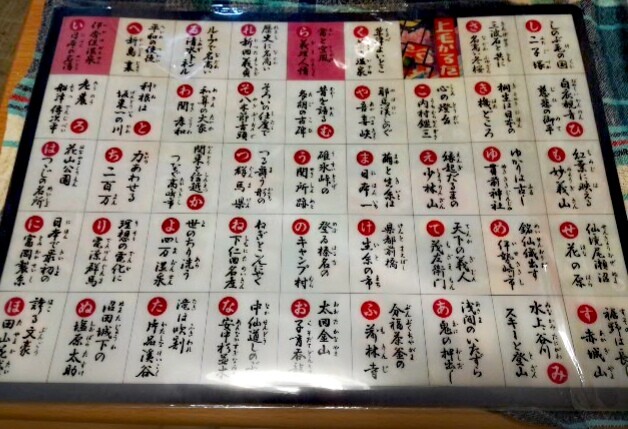 い
伊香保温泉
日本の名湯
ろ
老農
船津伝次平
は
花山公園
つつじの名所
に
日本で最初の
富岡製糸
ほ
誇る文豪
田山花
へ
平和の使徒
新島襄
と
利根は
坂東一の川
ち
力あわせる
二百万
り
理想の電化に
電源群馬
ぬ
沼田城下の
塩原太助
る
ループで名高い
清水トンネル
わ
和算の大家
関孝和
か
関東と信越
つなぐ高崎市
よ
世のちり洗う
四万温泉
た
滝は吹割
片品渓谷
れ
歴史に名高い
新田義貞
そ
そろいの仕度で
八木節音頭
つ
つる舞う形の
群馬県
ね
ねぎとこんにゃく
下仁田名産
な
中仙道しのぶ
安中杉並木
ら
雷と空風
義理人情
む
昔を語る
多胡の古碑
う
碓氷峠の
関所跡
の
登る榛名の
キャンプ村
お
太田金山
子育呑龍
く
草津よいとこ
薬の温泉
や
耶馬溪しのぐ
吾妻峡
ま
繭と生糸は
日本一
け
県都前橋
生糸の市
ふ
分福茶釜の
茂林寺
上毛かるた
こ
心の燈台
内村鑑三
え
縁起だるまの
少林山
て
天下の義人
茂左衛門
あ
浅間のいたずら
鬼の押出し
さ
三波石と共に
名高い冬桜
き
桐生は日本の
機どころ
ゆ
ゆかりは古し
貫前神社
め
銘仙織出す
伊勢崎市
み
水上谷川
スキーと登山
し
しのぶ毛の国
二子塚
ひ
白衣観音
慈悲の御手
も
紅葉に映える
妙義山
せ
仙境尾瀬沼
花の原
す
裾野は長
赤城山